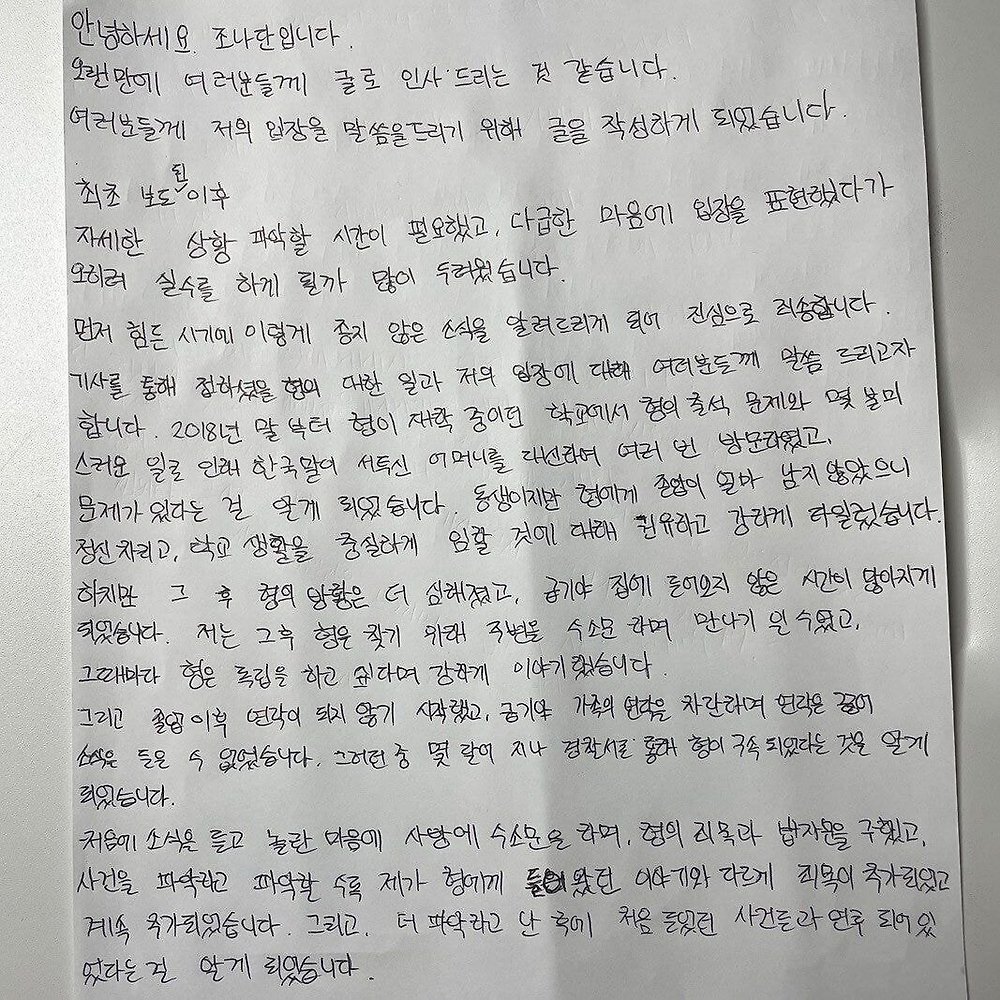 안녕하세요. 조나단입니다.
오랜만에 여러분들께 글로 인사 드리는 것 같습니다.
여러분들께 저의 입장을 말씀을드리기 위해 글을 작성하게 되었습니다.
최초 보도된 이후
자세한 상황 파악할 시간이 필요했고, 다급한 마음에 입장을 표현했다가
오히려 실수를 하게 될까 많이 두려웠습니다.
먼저 힘든 시기에 이렇게 좋지 않은 소식을 알려드리게 되어 진심으로 죄송합니다.
기사를 통해 접하셨을 형의 대한 일과 저의 입장에 대해 여러분들께 말씀 드리고자
합니다. 2018년 말 부터 형이 재학 중이던 학교에서 형의 출석 문제와 몇 불미
스러운 일로 인해 한국말이 서투신 어머니를 대신하여 여러 번 방문하였고,
문제가 있다는 걸 알게 되었습니다. 동생이지만 형에게 졸업이 얼마 남지 않았으니
정신차리고, 학교 생활을 충실하게 임할 것에 대해 권유하고 강하게 타일렀습니다.
하지만 그 후 형의 방황은 더 심해졌고, 급기야 집에 들어오지 않은 시간이 많아지게
되었습니다. 저는 그후 형을 찾기 위해 주변을 수소문 하며 만나기 일 수였고,
그때마다 형은 독립을 하고 싶다며 강하게 이야기했습니다.
그리고 졸업 이후 연락이 되지 않기 시작했고, 급기야 가족의 연락을 차단하며 연락을 끊어
소식을 들을 수 없었습니다. 그러던 중 몇 달이 지나 경찰서를 통해 형이 구속 되었다는 것을 알게
되었습니다.
처음에 소식을 듣고 놀란 마음에 사방에 수소문을 하며, 형의 죄목과 법자문을 구했고,
사건을 파악하고 파악할 수록 제가 형에게 들어왔던 이야기와 다르게 죄목이 추가되었고
계속 추가되었습니다. 그리고, 더 파악하고 난 후에 처음 들었던 사건들과 연루 되어 있
었다는걸 알게 되었습니다.